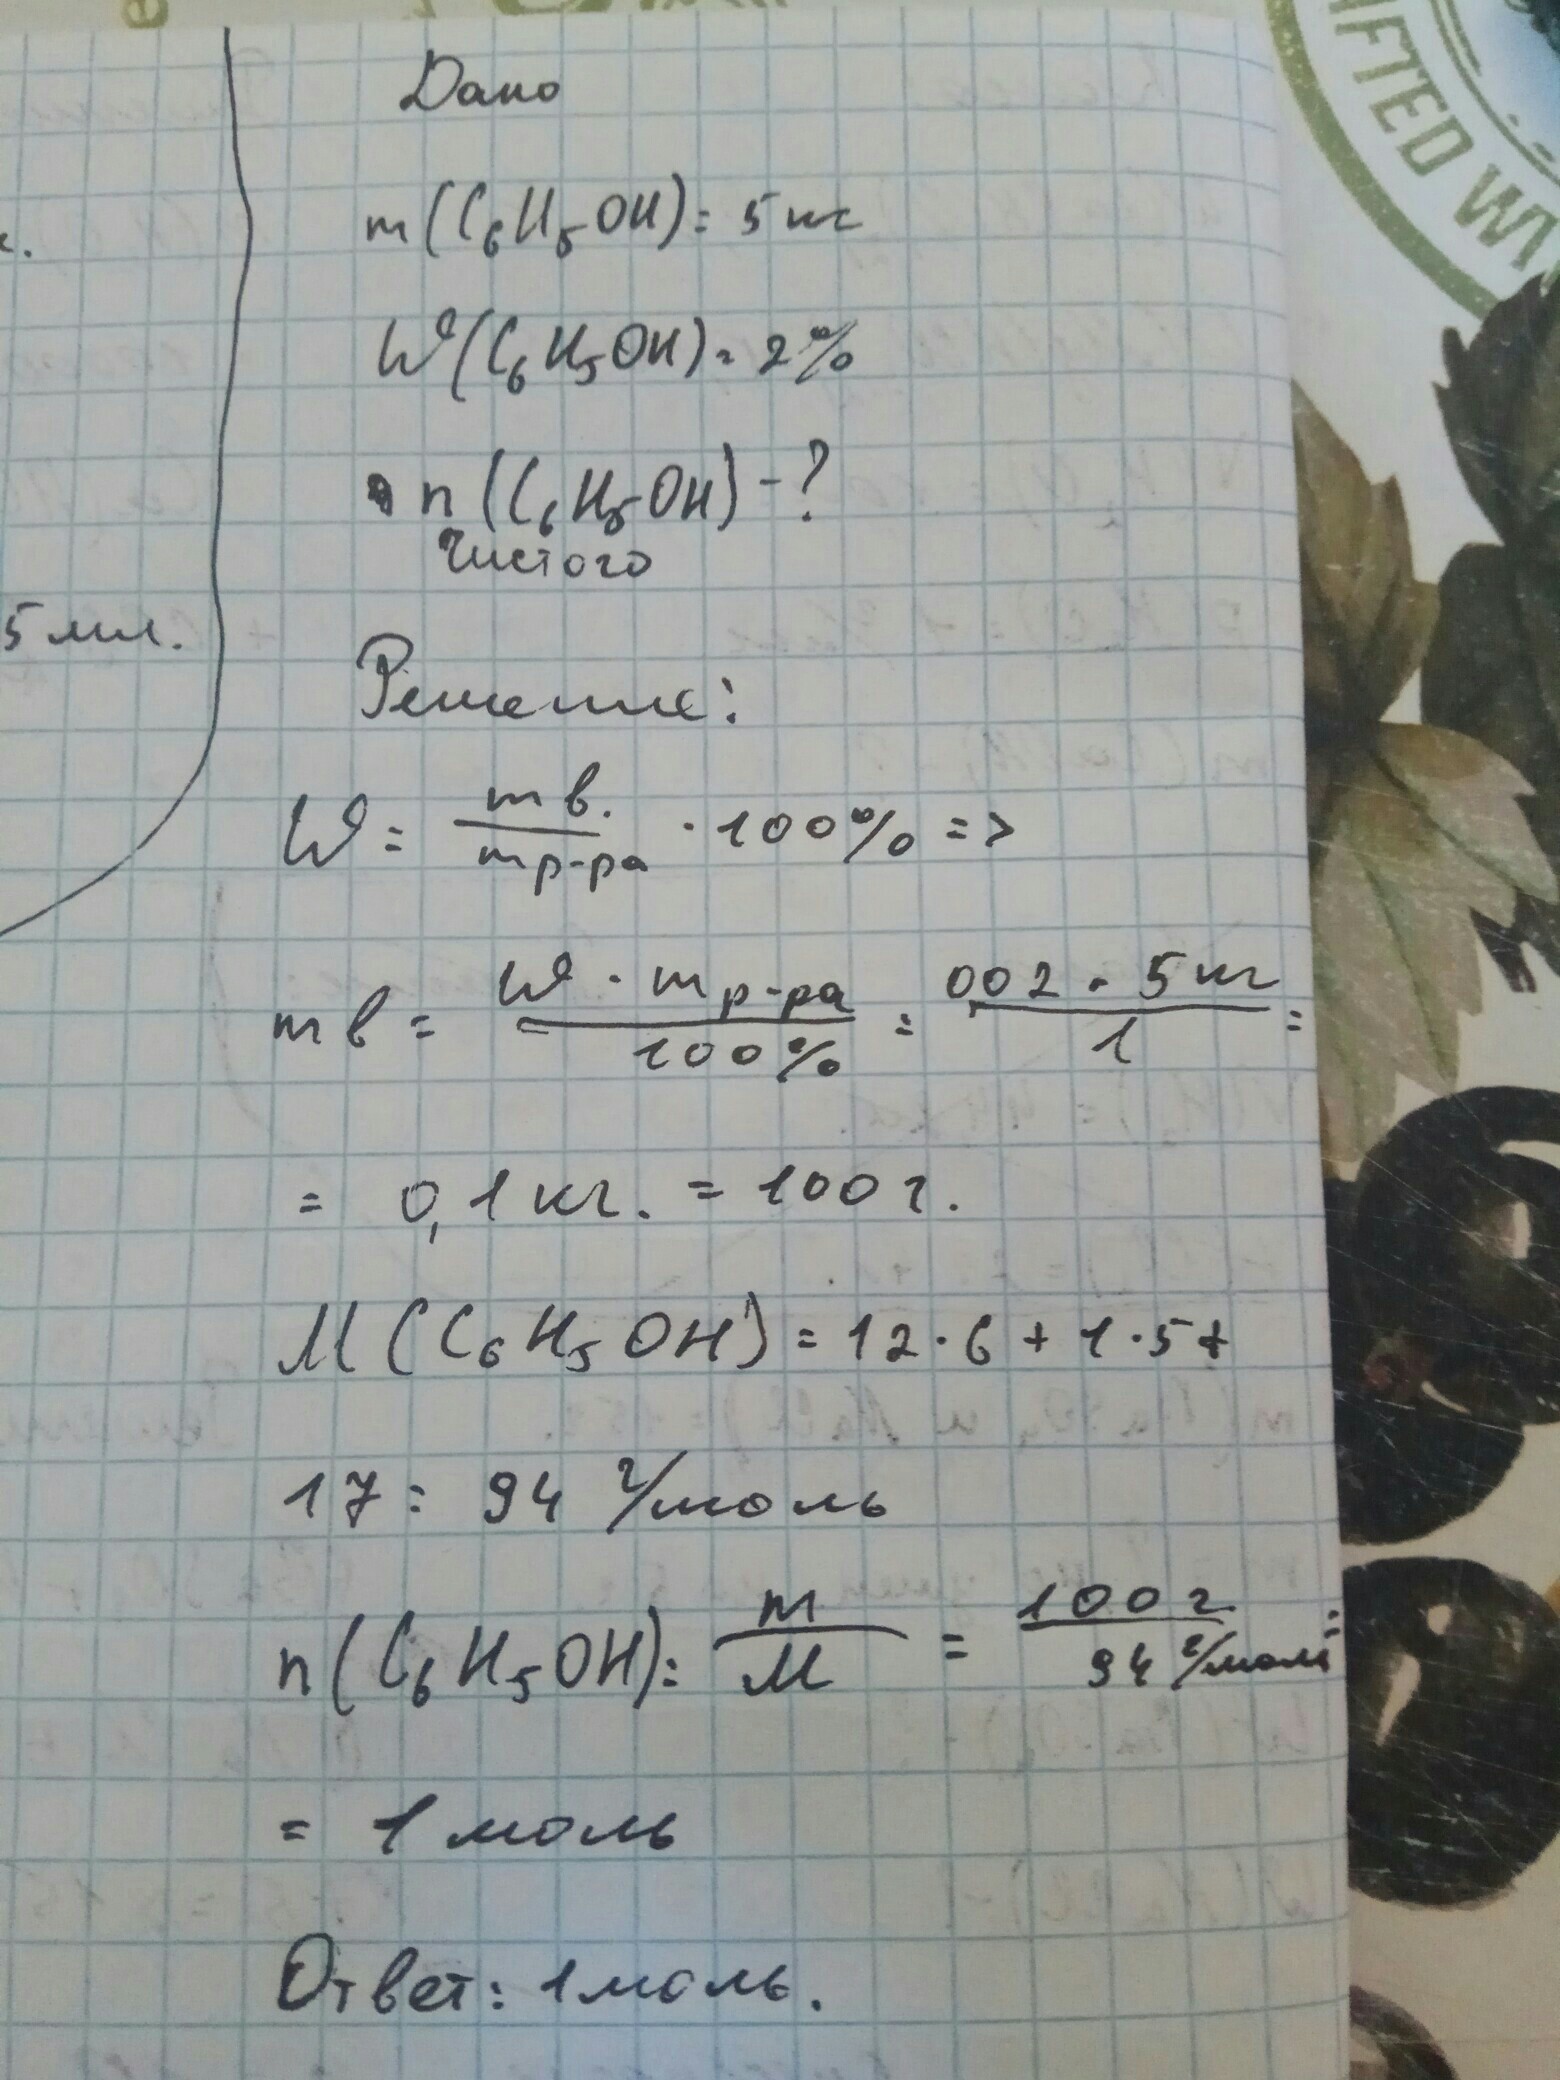 IFTED WI
Дано
m(C₆H₅OH) = 5 кг
W(C₆H₅OH) = 2%
n(C₆H₅OH) - ?
Чистого
5 мл.
Решение:
W = m в. / m р-ра · 100% =>
m в = W · m р-ра / 100% = 0,02 · 5 кг / 1 =
= 0,1 кг. = 100 г.
M(C₆H₅OH) = 12·6 + 1·5 +
17 = 94 г/моль
n(C₆H₅OH) = m / M = 100 г / 94 г/моль =
= 1 моль
Ответ: 1 моль.